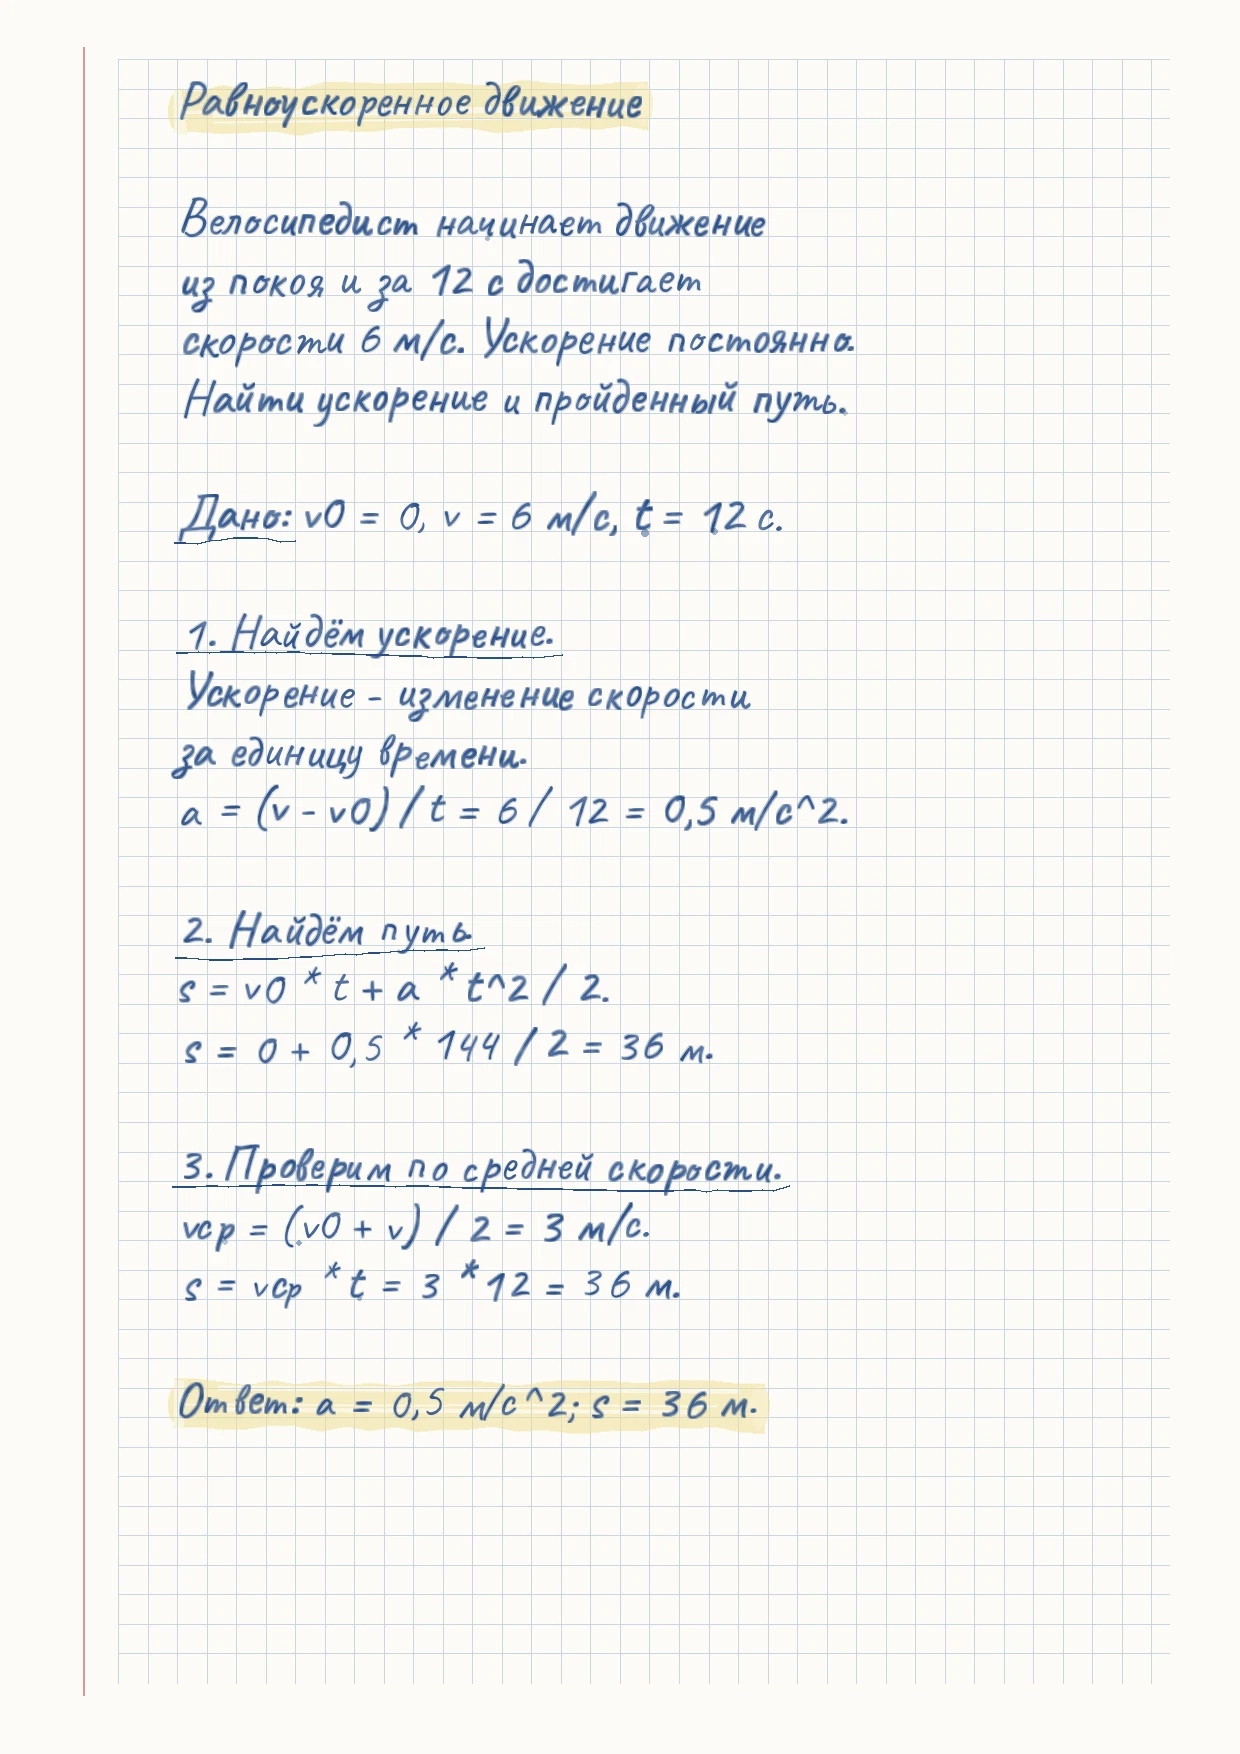 Равноускоренное движение
Велосипедист начинает движение
из покоя и за 12 с достигает
скорости 6 м/с. Ускорение постоянно.
Найти ускорение и пройденный путь.
Дано: v0 = 0, v = 6 м/с, t = 12 с.
1. Найдём ускорение.
Ускорение - изменение скорости
за единицу времени.
a = (v - v0) / t = 6 / 12 = 0,5 м/с^2.
2. Найдём путь.
s = v0 * t + a * t^2 / 2.
s = 0 + 0,5 * 144 / 2 = 36 м.
3. Проверим по средней скорости.
vср = (v0 + v) / 2 = 3 м/с.
s = vср * t = 3 * 12 = 36 м.
Ответ: a = 0,5 м/с^2; s = 36 м.